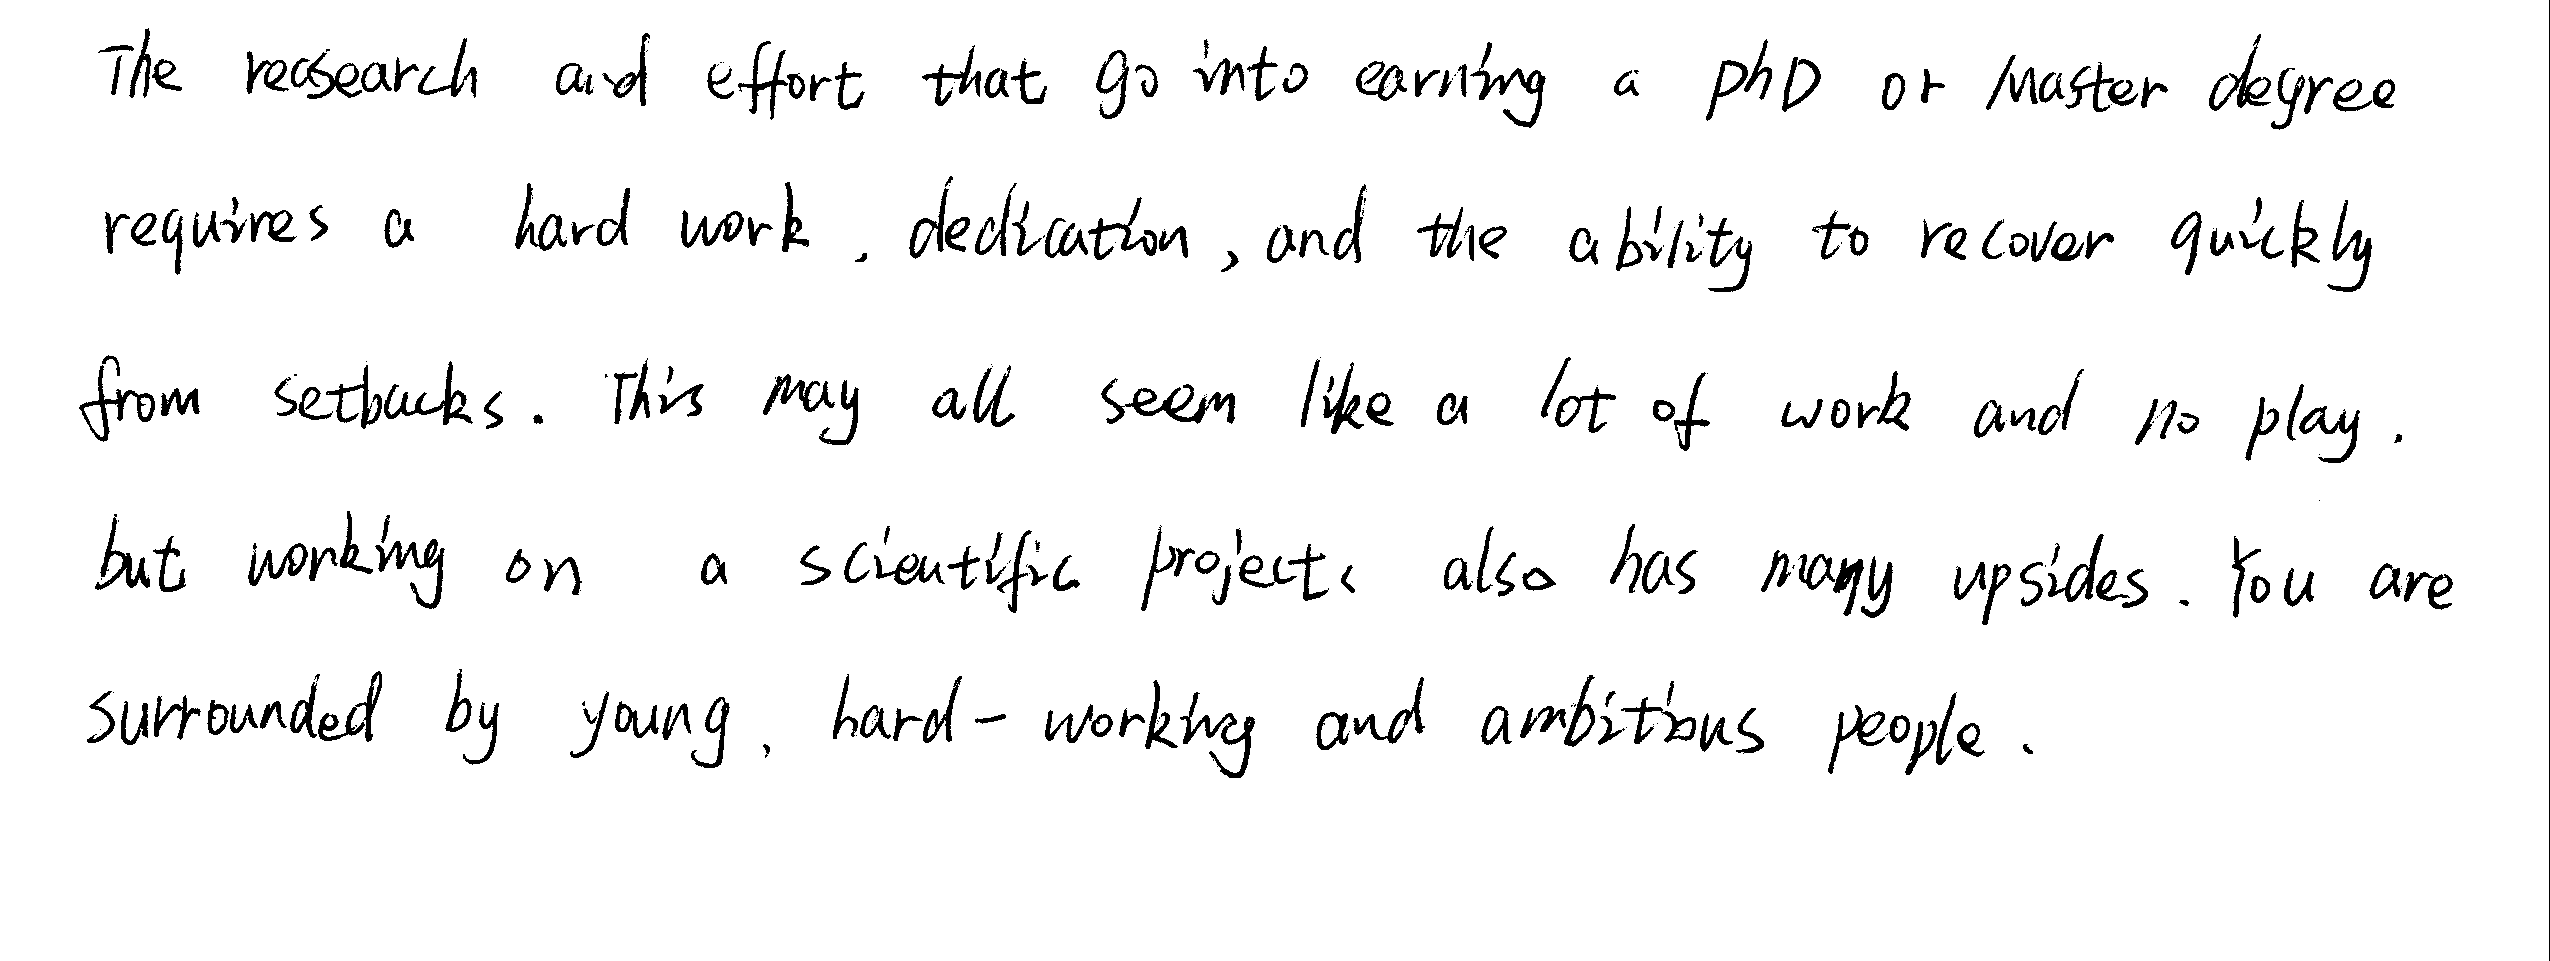 The reasearch and effort that go into earning a phD or Master degree
requires a hard work, dedication, and the ability to recover quickly
from setbacks. This may all seem like a lot of work and no play.
but working on a scientific projects also has many upsides. You are
surrounded by young, hard-working and ambitious people.